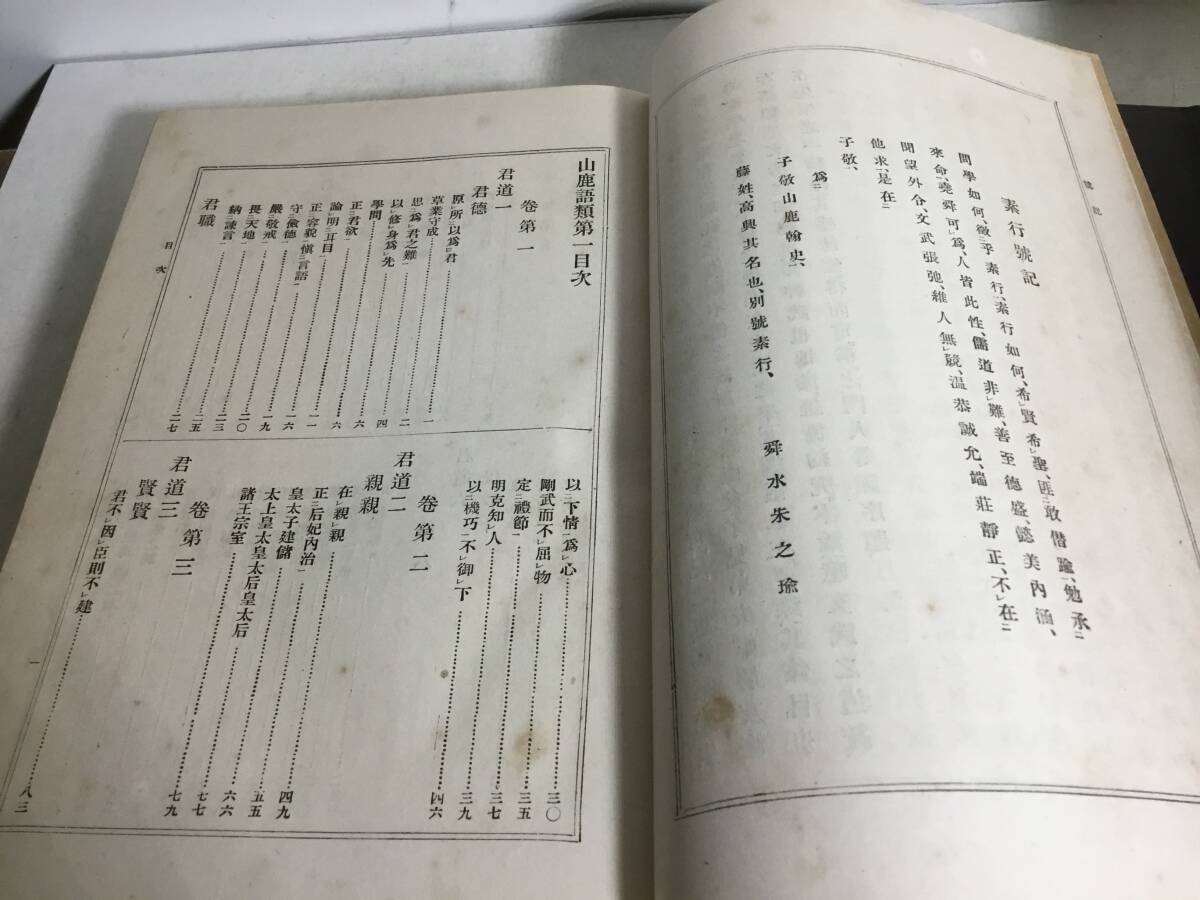 號記
素行號記
問學如何、徵乎素行、素行如何、希賢希聖、匪敢僭踰、勉承
來命、堯舜可爲、人皆此性、儒道非難、善至德盛、懿美內涵、
聞望外令、文武張弛、維人無競、溫恭誠允、端莊靜正、不在
他求、是在
子敬、
爲
子敬山鹿翰史、
藤姓、高興其名也、別號素行、
舜水朱之瑜
山鹿語類第一目次
卷第一
君道一
君德
原所以爲君……一
草業守成……二
思爲君之難……四
以修身爲先……六
學問……六
正君欲……一一
論明耳目……一六
正容貌愼言語……一九
守儉德……二〇
嚴敬戒……二三
畏天地……二五
納諫言……二七
君職
以下情爲心……三〇
剛武而不屈物……三五
定禮節……三七
明克知人……三九
以機巧不御下……四六
卷第二
君道二
親親
在親親……四九
正后妃內治……五五
皇太子建儲……六六
太上皇太皇太后皇太后……七七
諸王宗室……七九
卷第三
君道三
賢賢
君不因臣則不建……八三
目次
一